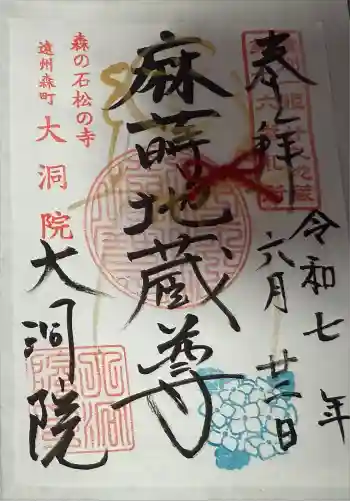 奉拝
令和七年
六月廿二日
麻蒔地蔵尊
大洞院
森の石松の寺
遠州森町 大洞院